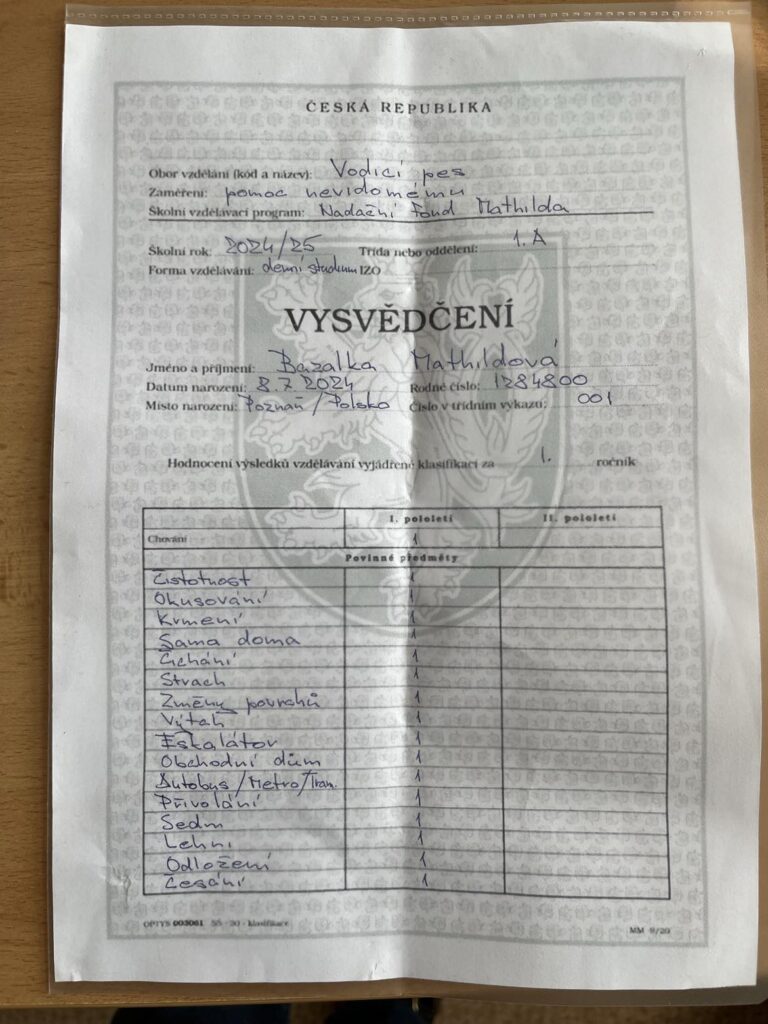 ČESKÁ REPUBLIKA
Obor vzdělání (kód a název): Vodicí pes
Zaměření: pomoc nevidomému
Školní vzdělávací program: Nadační fond Mathilda
Školní rok: 2024/25 Třída nebo oddělení: 1. A
Forma vzdělávání: denní studium IZO
VYSVĚDČENÍ
Jméno a příjmení: Bazalka Mathildová
Datum narození: 8.7.2024 Rodné číslo: 1284800
Místo narození: Poznaň/Polsko Číslo v třídním výkazu: 001
Hodnocení výsledků vzdělávání vyjádřené klasifikací za 1. ročník
I. pololetí II. pololetí
Chování 1
Povinné předměty
Čistotnost 1
Okusování 1
Krmení 1
Sama doma 1
Čichání 1
Strach 1
Změny povrchů 1
Výtah 1
Eskalátor 1
Obchodní dům 1
Autobus/Metro/Tram. 1
Přivolání 1
Sedni 1
Lehni 1
Odložení 1
Česání 1
OPTYS 003061 55 - 30 - klasifikace MM 9/20